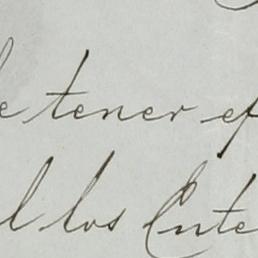 e tener ef
l los Ente